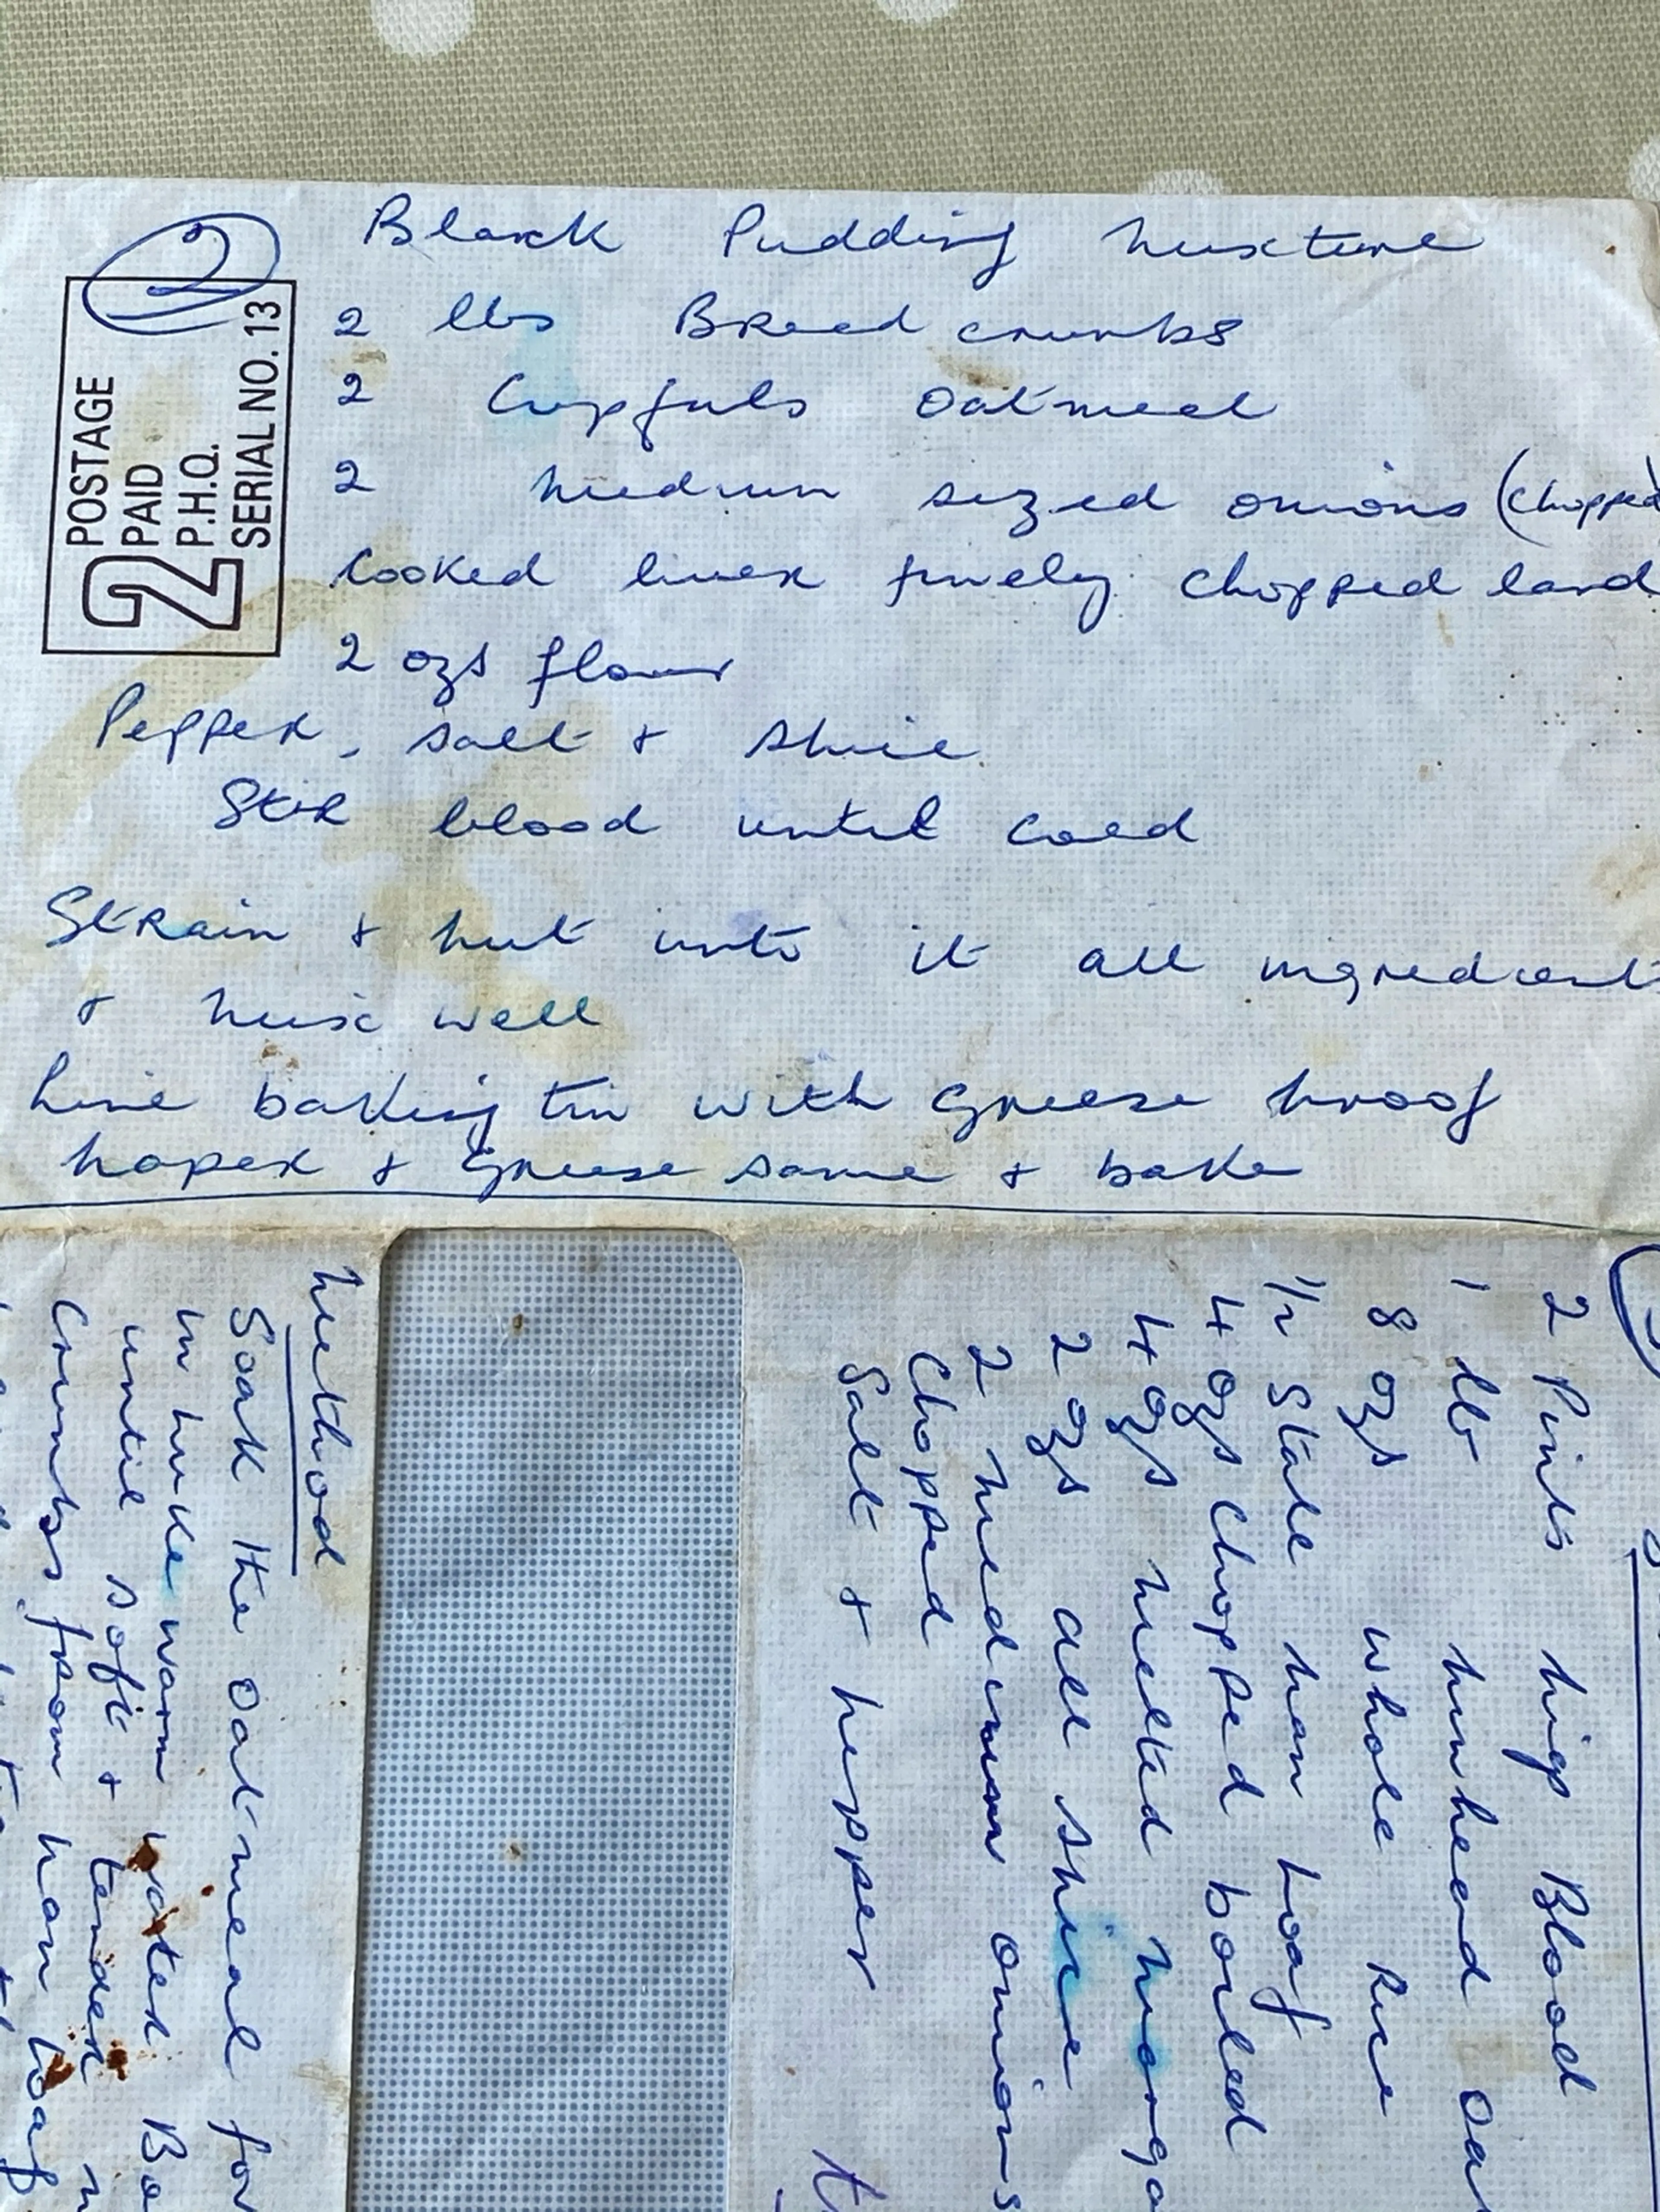 2
POSTAGE
PAID
P.H.Q.
SERIAL NO. 13
2
Black Pudding Mixture
2 lbs Bread crumbs
2 Cupfuls Oatmeal
2 Medium sized onions (chopped)
Cooked liver finely chopped lard
2 ozs flour
Pepper, salt & spice
Stir blood until cold
Strain & put into it all ingredients
& mix well
Line baking tin with grease proof
paper & grease same & bake
2 Pints pig Blood
1 lb pinhead
8 ozs whole Rice
1/2 Stale pan Loaf
4 ozs Chopped boiled
4 ozs melted
2 ozs all spice
2 medium onions
Chopped
Salt & pepper
Method
Soak the oatmeal for
in luke warm water
until soft & tender
Crumbs from pan loaf